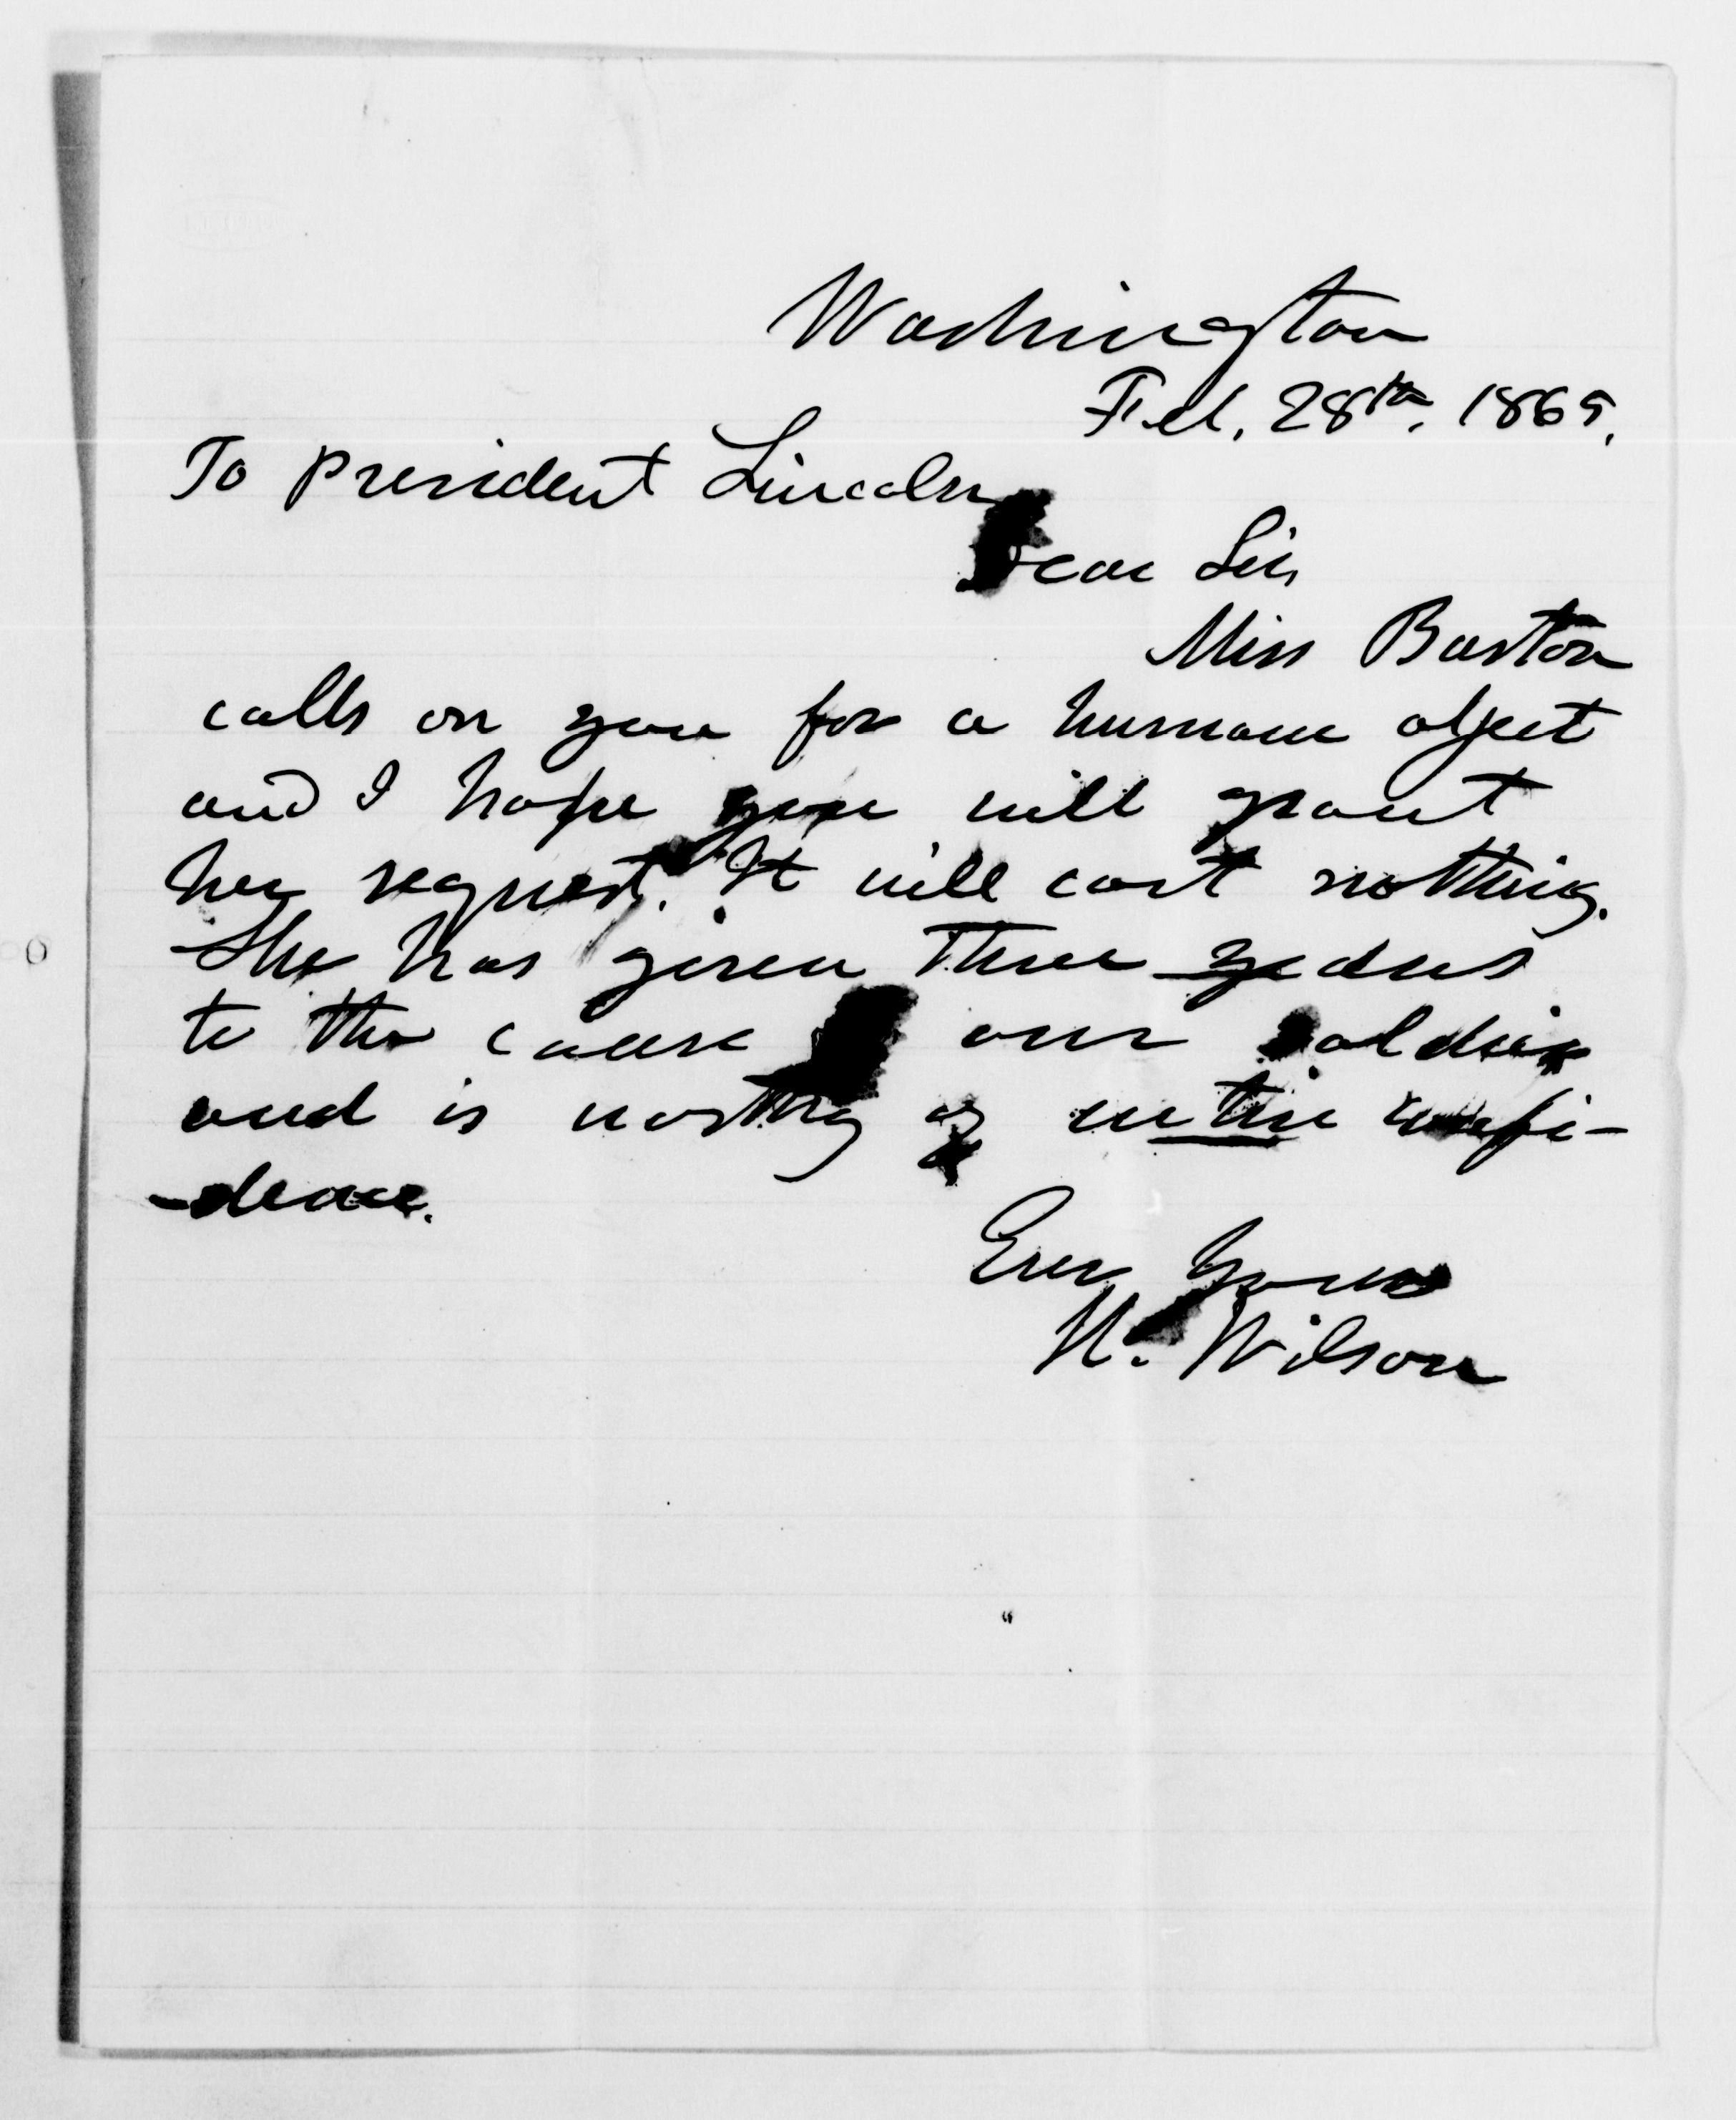 Washington
Feb. 28th, 1865.
To President Lincoln
Dear Sir,
Miss Barton
calls on you for a humane object
and I hope you will grant
her request. It will cost nothing.
She has given three years
to the cause our soldiers
and is worthy of entire confi-
-dence.
Ever Yours
H. Wilson